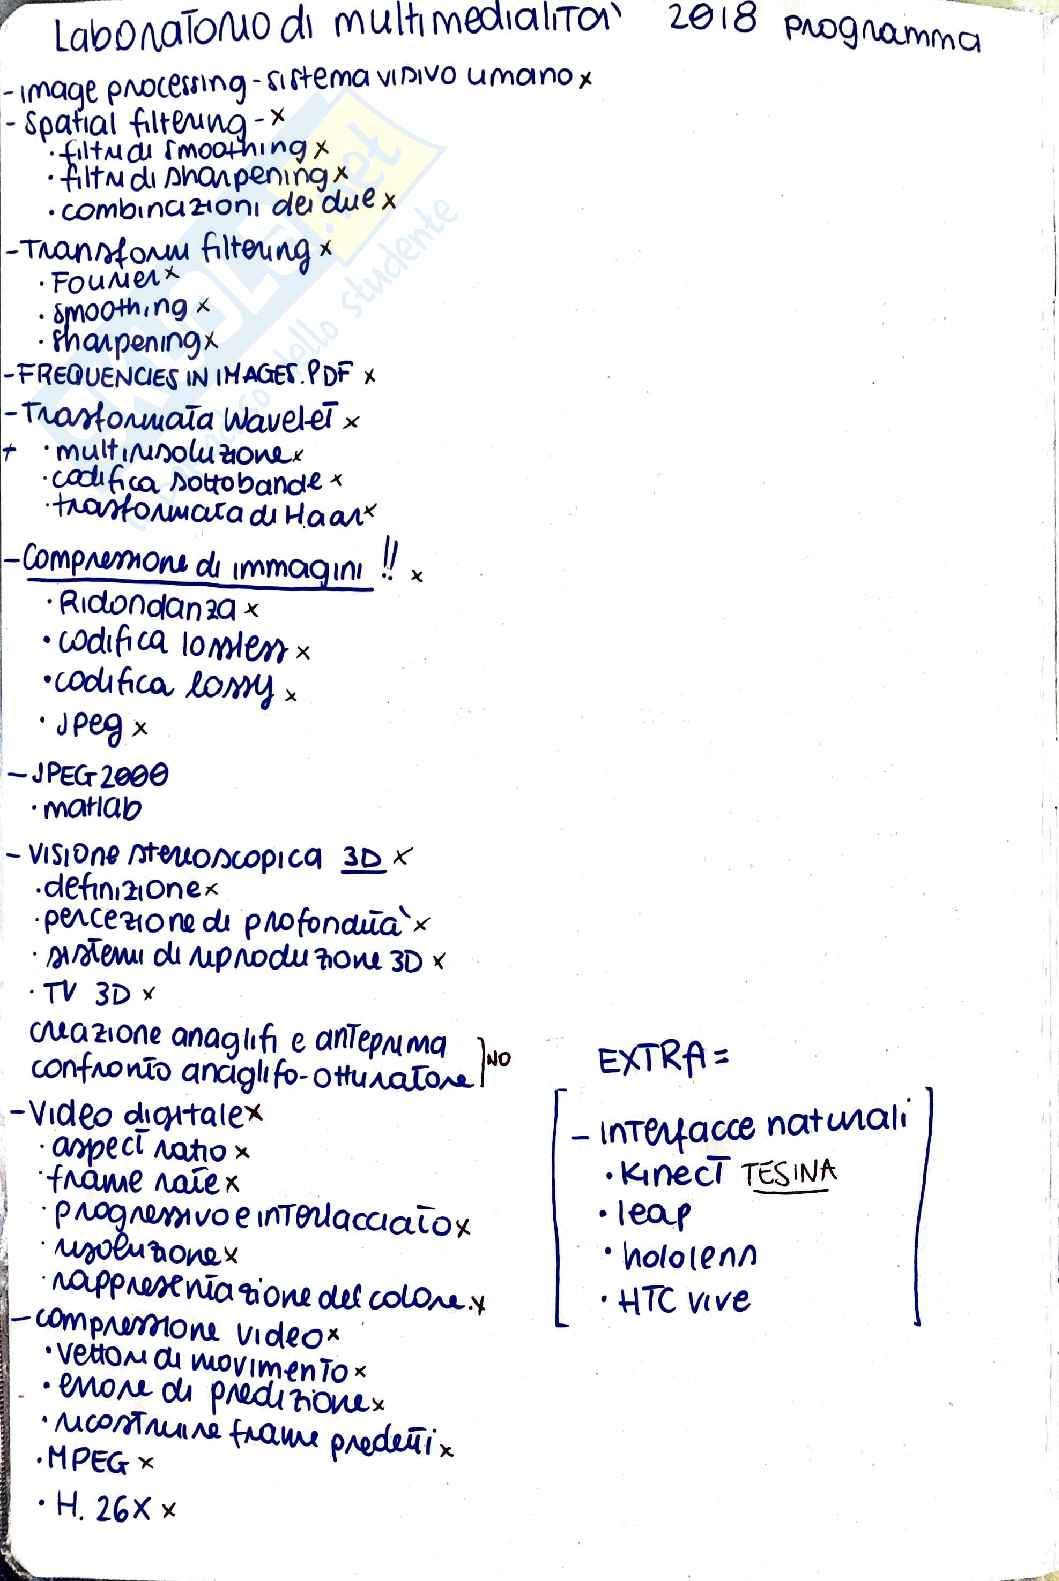 Laboratorio di multimedialità 2018 programma
- image processing - sistema visivo umano x
- Spatial filtering - x
· filtri di smoothing x
· filtri di sharpening x
· combinazioni dei due x
- Transform filtering x
· Fourier x
· smoothing x
· sharpening x
- FREQUENCIES IN IMAGES.PDF x
- Trasformata Wavelet x
+ · multirisoluzione x
· codifica sottobande x
· trasformata di Haar x
- Compressione di immagini !! x
· Ridondanza x
· codifica lossless x
· codifica lossy x
· Jpeg x
- JPEG2000
· matlab
- visione stereoscopica 3D x
· definizione x
· percezione di profondità x
· sistemi di riproduzione 3D x
· TV 3D x
creazione anaglifi e anteprima
confronto anaglifo-otturatore ] NO
- Video digitale x
· aspect ratio x
· frame rate x
· progressivo e interlacciato x
· risoluzione x
· rappresentazione del colore. x
- compressione video x
· vettori di movimento x
· errore di predizione x
· ricostruire frame predetti x
· MPEG x
· H. 26X x
EXTRA =
- Interfacce naturali
· Kinect TESINA
· leap
· hololens
· HTC vive
SKUOLA.net
dello studente